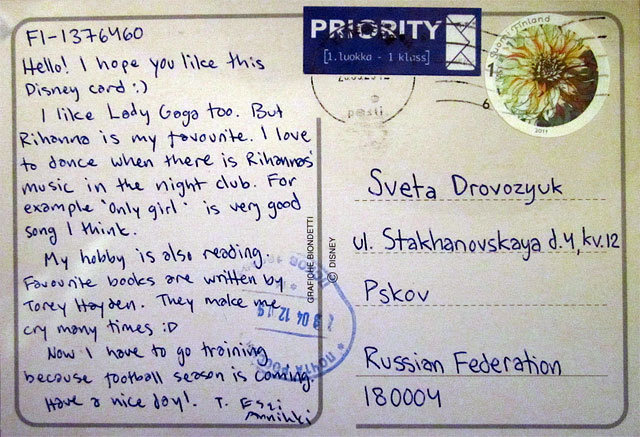 FI-1376460
Hello! I hope you lilce this
Disney card :)
I like Lady Gaga too. But
Rihanna is my favourite. I love
to dance when there is Rihannas'
music in the night club. For
example "Only girl" is very good
song I think.
My hobby is also reading.
Favourite books are written by
Torey Hayden. They make me
cry many times :D
Now I have to go training
because football season is coming.
Have a nice day! T. Essi
Annikki
GRAFICHE BIONDETTI
© DISNEY
PRIORITY
[1.luokka - 1 klass]
posti
Suomi Finland
2011
Sveta Drovozyuk
ul. Stakhanovskaya d.4, kv.12
Pskov
Russian Federation
180004
04 12 19
ПОЧТА РОССИИ